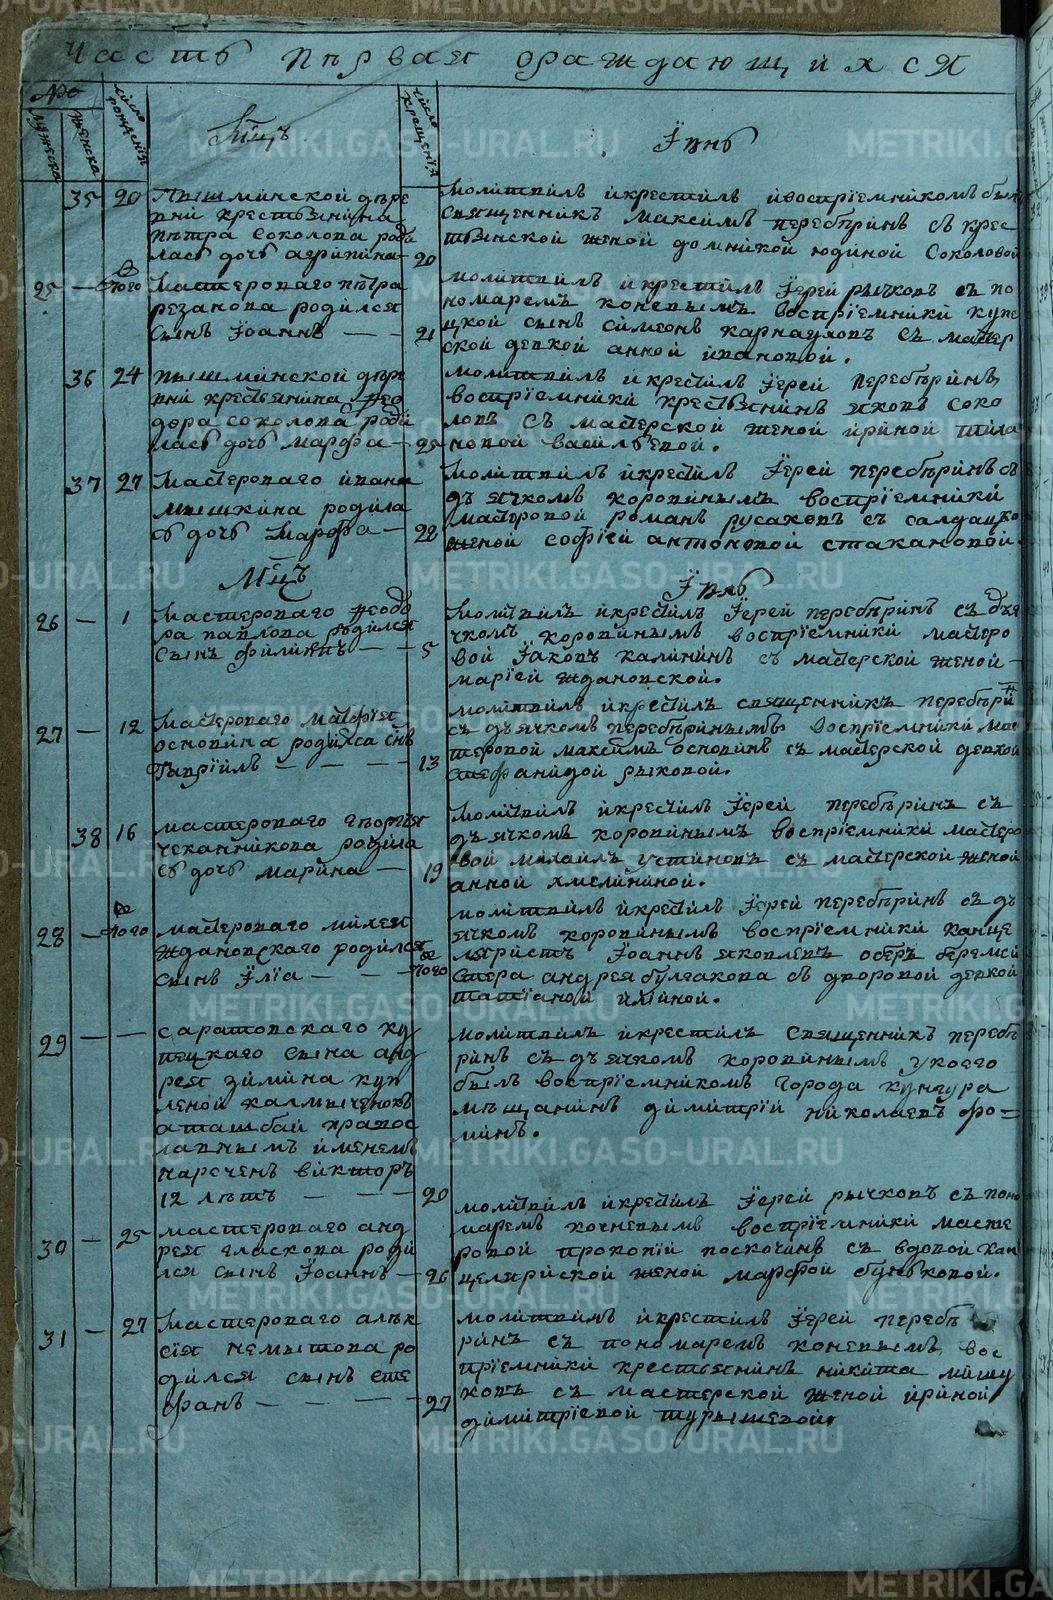 Часть первая ораждающихся
№
мужеска
женска
число рождения
Мсцъ
число крещенїя
Їюнь
35 20 Пышминской дере
вни крестьянина
Петра Соколова роди
лась дочь агрипина 20
молитвилъ и крестилъ и воспрїемникомъ былъ
священникъ Максимъ перебѣринъ съ крес
тьянской женой домникой юдиной Соколовой
25 — того Мастероваго петра
резанова родился
сынъ Їоаннъ — — 21
молитвилъ и крестилъ Їерей рычковъ съ по
номаремъ коневымъ воспрїемники купе
цкой сынъ симеонъ карнауховъ съ мастер
ской девкой анной ивановой.
36 24 пышминской дере
вни крестьянина Фео
дора соколова роди
лась дочь марфа — 25
молитвилъ и крестилъ Їерей перебѣринъ
воспрїемники крестьянинъ яковъ соко
ловъ съ мастерской женой ириной
новой васильевой.
37 27 Мастероваго ивана
мышкина родила
сь дочь Марфа — 28
молитвилъ и крестилъ Їерей перебѣринъ съ
дьячкомъ коровинымъ воспрїемники
мастеровой романъ русаковъ съ салдацко
женой софїей антоновой стакановой
Мсцъ
Їюль
26 — 1 Мастероваго Феодо
ра павлова родился
сынъ филиппъ — — 5
молитвилъ и крестилъ Їерей перебѣринъ съ дья
чкомъ коровинымъ воспрїемники мастеро
вой Їаковъ калининъ съ мастерской женой
марїей ждановской.
27 — 12 Мастероваго матфїя
осповина родился снъ
Гаврїилъ — — — — 13
молитвилъ и крестилъ священникъ перебѣри
съ дьячкомъ перебѣринымъ воспрїемники мас
теровой максимъ осповинъ съ мастерской девкой
стефанидой рыковой.
38 16 мастероваго гѣоргїя
чеканникова родила
сь дочь марина — 19
молитвилъ и крестилъ Їерей перебѣринъ съ
дьячкомъ коровинымъ воспрїемники мастеро
вой михаилъ устиновъ съ мастерской женой
анной хмелининой.
28 — того мастероваго михея
ждановскаго родился
сынъ Їлїа — — — того
молитвилъ и крестилъ Їерей перебѣринъ съ дь
ячкомъ коровинымъ воспрїемники канце
ляристъ Їоаннъ яковлевъ оберъ бергмей
стера андрея булгакова съ дворовой девкой
татїаной
29 — — саратовскаго ку
пецкаго сына анд
рея димина куп
леной калмыченокъ
аташбай правос
лавнымъ именемъ
нареченъ викторъ
12 лѣтъ — — — 20
молитвилъ и крестилъ священникъ перебѣ
ринъ съ дьячкомъ коровинымъ у коего
былъ воспрїемникомъ города кунгура
мѣщанинъ димитрїй николаевъ фо=
минъ.
30 — 25 мастероваго анд
рея гласкова роди
лся сынъ Їоаннъ — 26
молитвилъ и крестилъ Їерей рычковъ съ поно
маремъ кочневымъ воспрїемники масте
ровой прокопїй поскочинъ съ вдовой кан
целярской женой марфой буньковой.
31 — 27 Мастероваго алек
сїя немытова ро
дился сынъ сте
фанъ — — — — 27
молитвилъ и крестилъ Їерей перебѣ
ринъ съ пономаремъ коневымъ вос
прїемники крестьянинъ никита мишу
ковъ съ мастерской женой ириной
димитрїевой турышевой.
METRIKI.GASO-URAL.RU